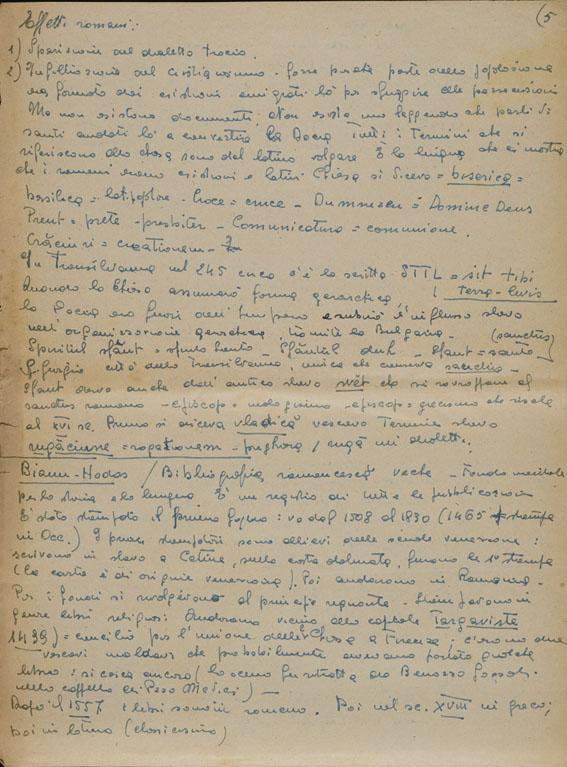 Effetti romani: (5
1) Sparizione del dialetto tracio.
2) Infiltrazione del cristianesimo. Forse parte della popolazione
era formata dai cristiani emigrati là per sfuggire alle persecuzioni
Ma non esistono documenti. Non esiste una leggenda che parli di
santi andati là a convertire la Dacia. Tutti i Termini che si
riferiscono alla chiesa sono del latino volgare. È la lingua che ci mostra
che i rumeni erano cristiani e latini Chiesa si diceva = biserica =
basilica = lat. popolare. Croce = cruce - Dumnezeu = Domine Deus
Preut = prete - presbiter - Comunicatura = comunione.
Crăciun = creationem -
In Transilvania nel 245 circa c'è la scritta STTL = sit tibi
terra levis
Quando la Chiesa assumerà forma gerarchica,
la Dacia era fuori dell'impero e subirà l'influsso slavo
nell'organizzazione gerarchica, tramite la Bulgaria - (sanctus)
Spiritul sfânt = spirito santo - Sfântul duh - sfant = santo
S. Giorgio città della Transilvania, unica che conserva
Sfant deriva anche dall'antico slavo svět che si sovrappone al
sanctus romano - episcop = - episcop = grecismo che risale
al XVI sec. Prima si diceva vladică vescovo Termine slavo
rugăciune = rogationem = preghiera / rugă nei dialetti.
Bianu-Hodos / Bibliografia romanesca veche -
per la storia e la lingua. È un registro di tutte le pubblicazioni
È stato stampato il primo : va dal 1508 al 1830 (1465 stampa
in Occ.) I primi stampatori sono allievi delle scuole veneziane:
scrivono in slavo a Catina, sulla costa dalmata, furono le 1e stampe
(la carta è di origine veneziana). Poi andarono in Romania.
Per i fondi si rivolgevano al principe regnante. Stampavano in
genere libri religiosi. Andarono vicino alla capitale Targaviste
1439) = concilio per l'unione della Chiesa a Firenze: c'erano due
vescovi moldavi che probabilmente avevano portato qualche
libro: si cerca ancora (la scena fu ritratta da Benozzo Gozzoli
nella cappella dei Pazzi Medici) -
Dopo il 1557 i libri sono in romeno. Poi nel sec. XVIII in greco;
poi in latino (classicismo)